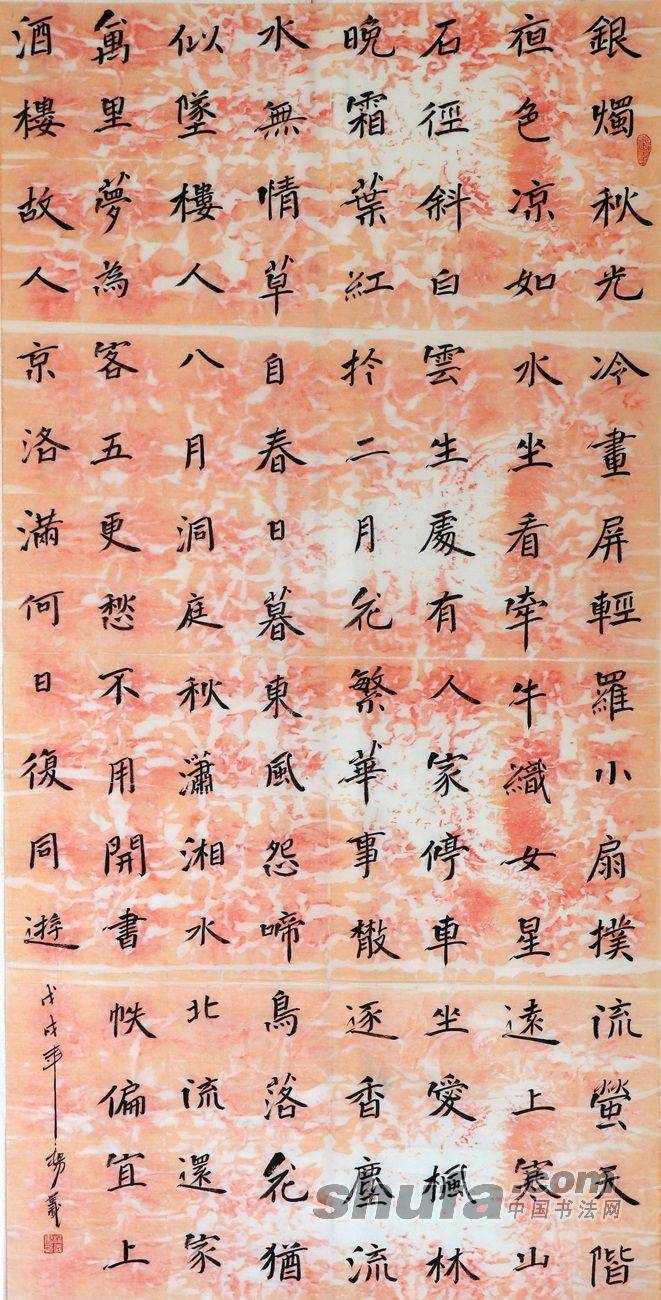 銀燭秋光冷畫屏輕羅小扇撲流螢天階
夜色凉如水坐看牽牛織女星遠上寒山
石徑斜白雲生處有人家停車坐愛楓林
晚霜葉紅於二月花繁華事散逐香塵流
水無情草自春日暮東風怨啼鳥落花猶
似墜樓人八月洞庭秋瀟湘水北流還家
萬里夢為客五更愁不用開書帙偏宜上
酒樓故人京洛滿何日復同遊
戊戌年
shufa.com
中国书法网